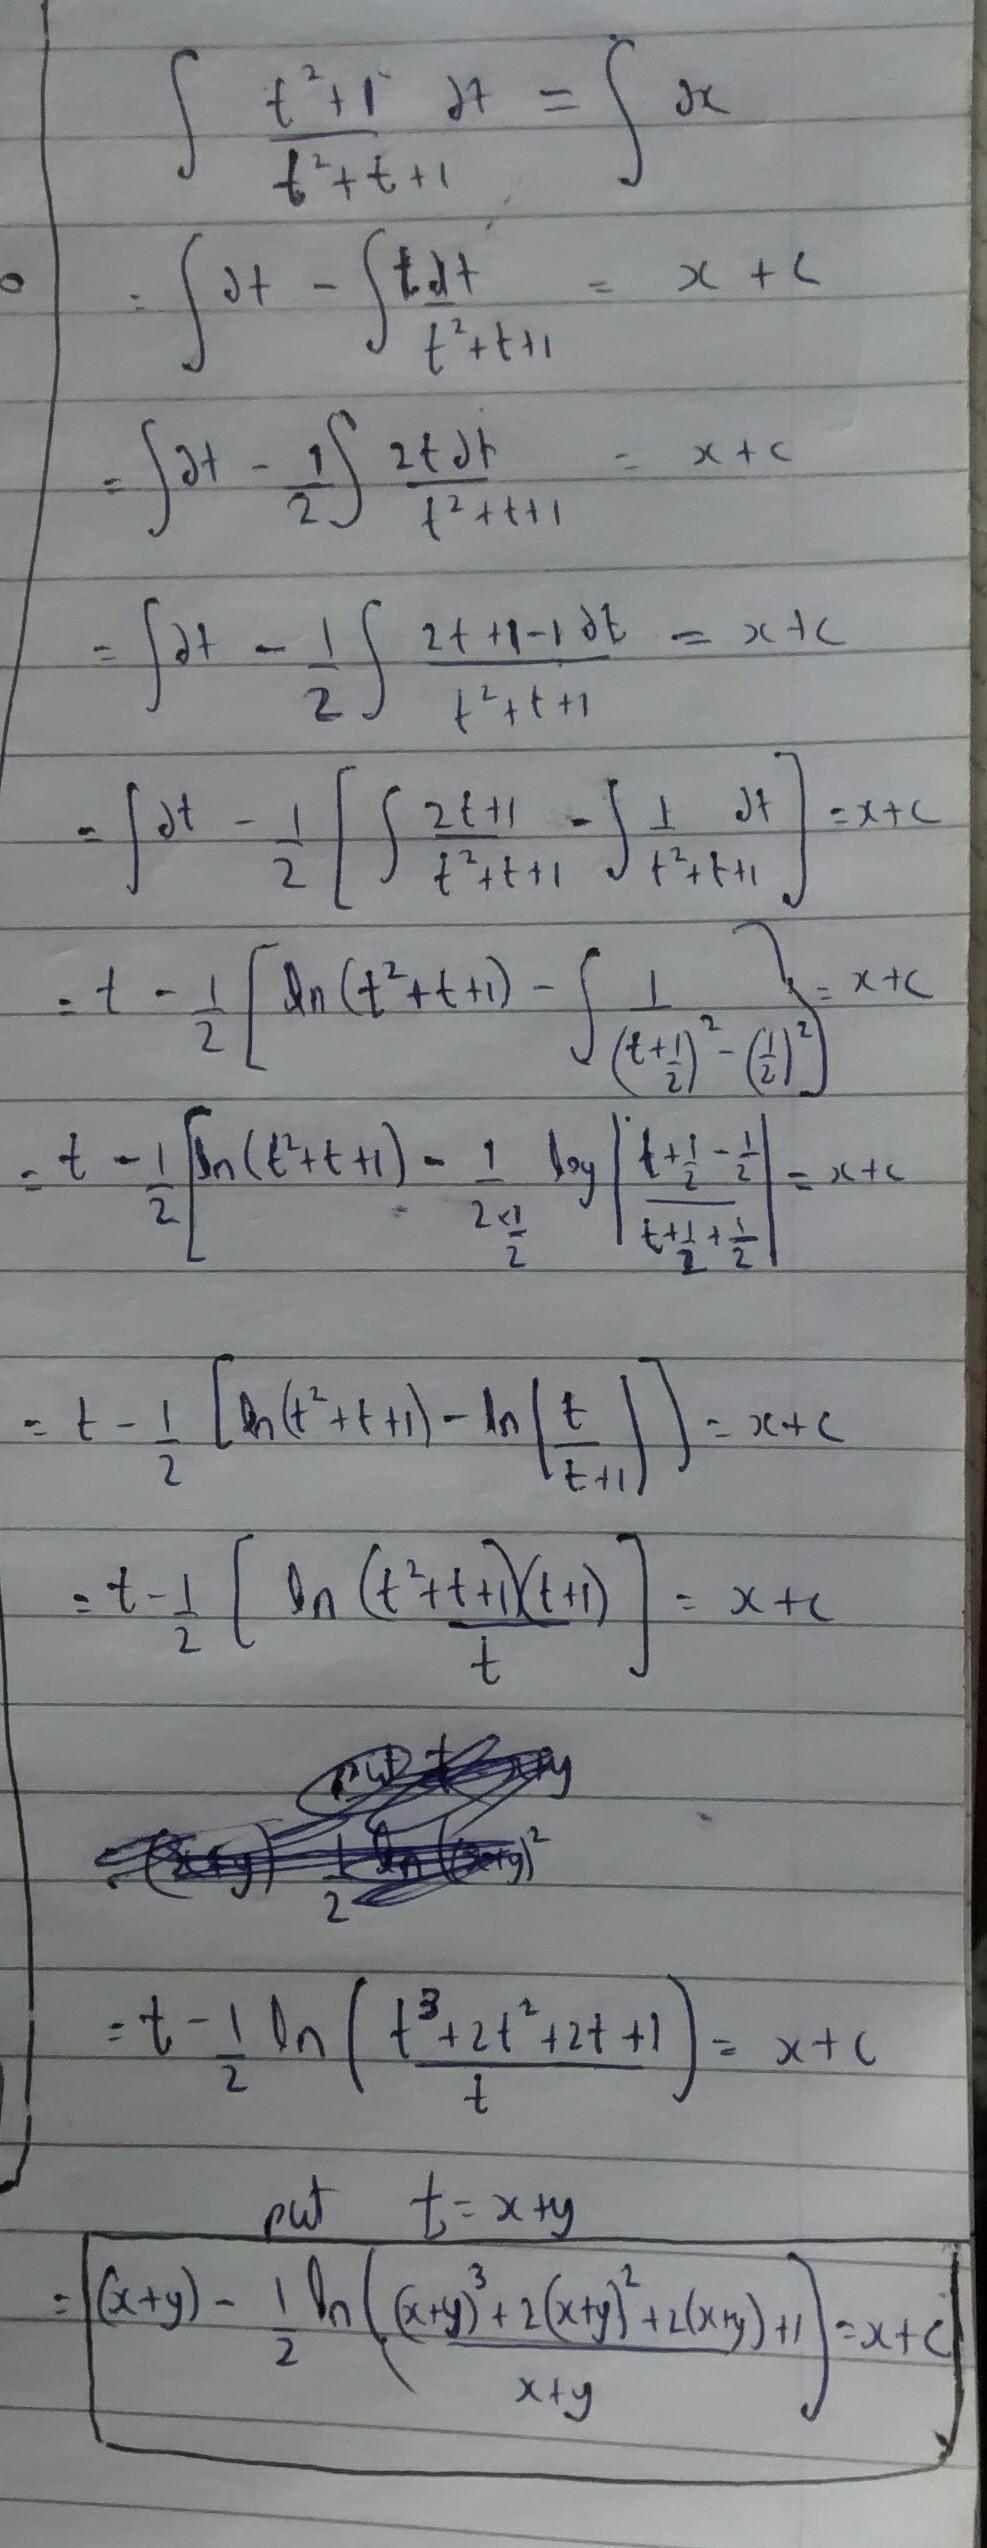 ∫ t²+1 / t²+t+1 dt = ∫ dx
= ∫ dt - ∫ t dt / t²+t+1 = x + c
= ∫ dt - 1/2 ∫ 2t dt / t²+t+1 = x + c
= ∫ dt - 1/2 ∫ 2t+1-1 dt / t²+t+1 = x + c
= ∫ dt - 1/2 [ ∫ 2t+1 / t²+t+1 - ∫ 1 / t²+t+1 dt ] = x + c
= t - 1/2 [ ln (t²+t+1) - ∫ 1 / (t+1/2)² - (1/2)² ] = x + c
= t - 1/2 [ ln (t²+t+1) - 1 / 2×1/2 log | t+1/2-1/2 / t+1/2+1/2 | = x + c
= t - 1/2 [ ln (t²+t+1) - ln | t / t+1 | ] = x + c
= t - 1/2 [ ln (t²+t+1)(t+1) / t ] = x + c
= t - 1/2 ln ( t³+2t²+2t+1 / t ) = x + c
put t = x+y
= (x+y) - 1/2 ln ( (x+y)³ + 2(x+y)² + 2(x+y) + 1 / x+y ) = x + c